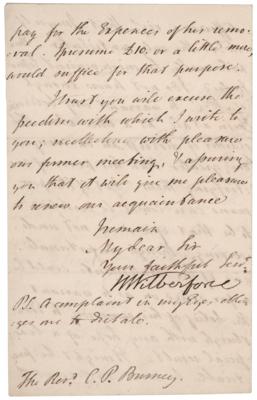 pay for the Expences of her remo-
oval. I presume £10. or a little more,
would suffice for that purpose.
I trust you will excuse the
freedom with which I write to
you; recollecting with pleasure
our former meeting, & assuring
you that it will give me pleasure
to renew our acquaintance
I remain
My dear Sir
Your faithful Servt.
W Wilberforce
P.S. A complaint in my Eyes obli-
ges me to dictate.
The Revd. C. P. Burney.